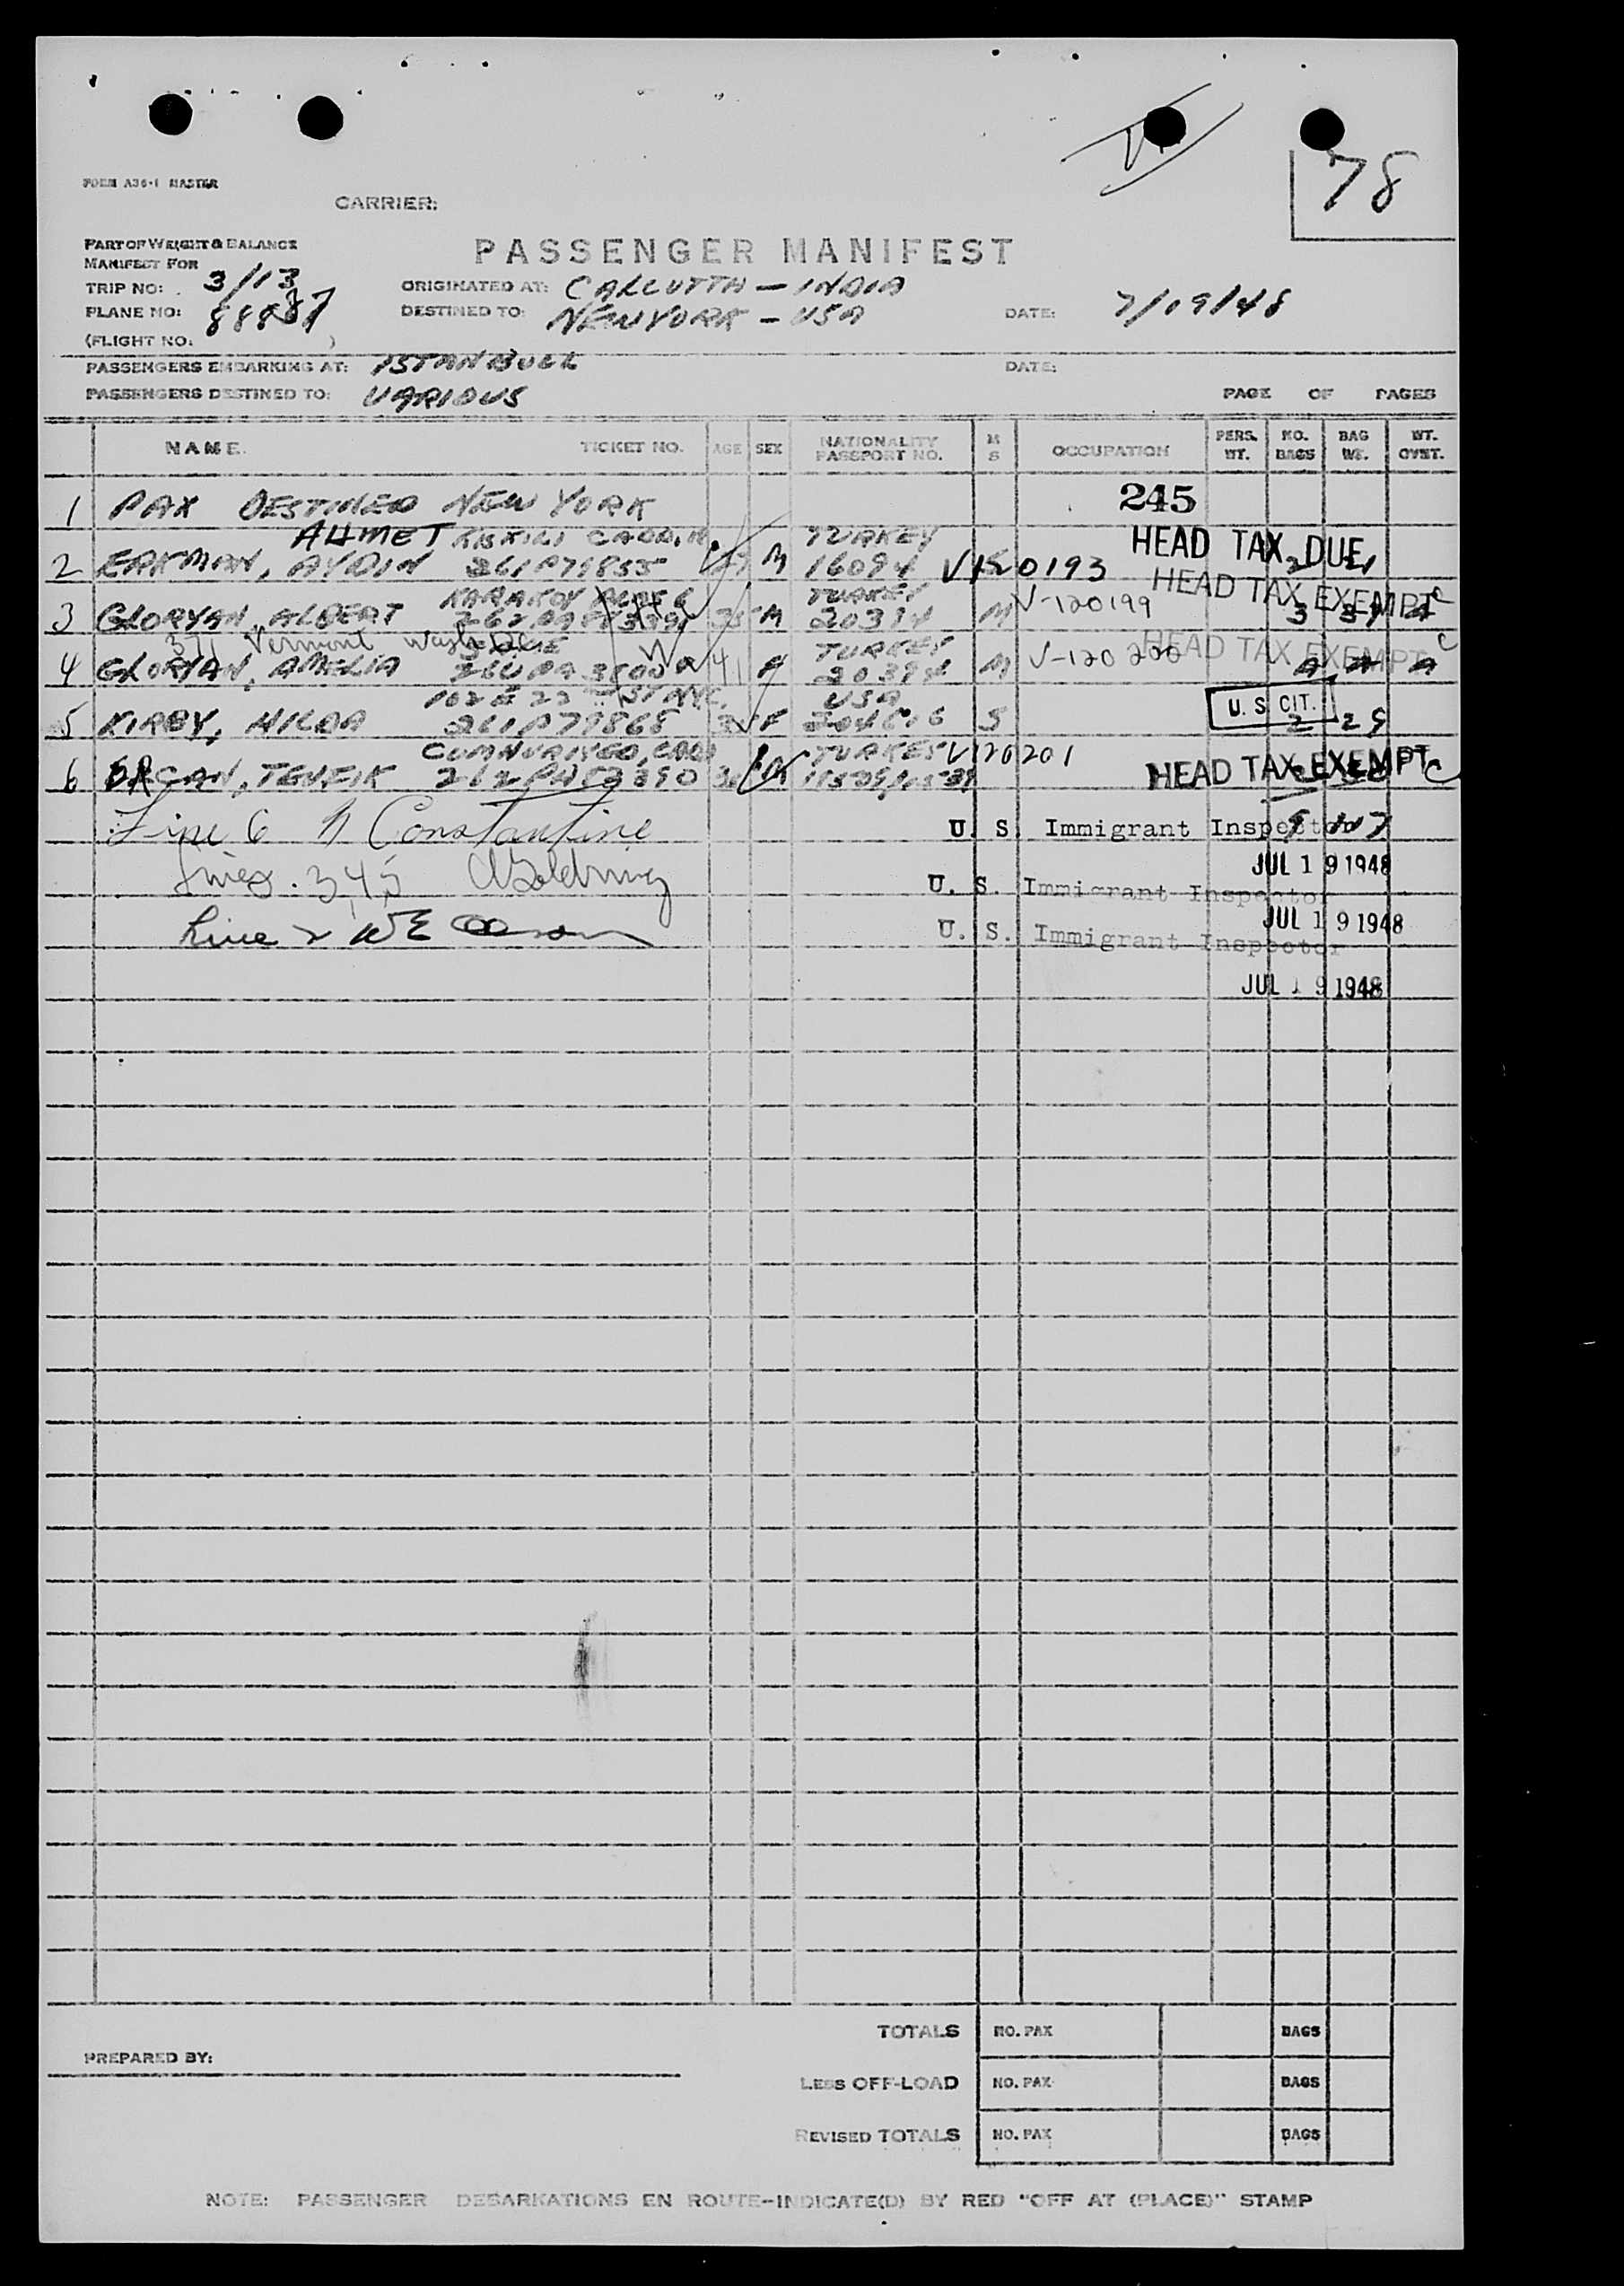 78
FORM A36-1 MASTER
CARRIER:
PART OF WEIGHT & BALANCE
MANIFEST FOR
PASSENGER MANIFEST
TRIP NO: 3/13
ORIGINATED AT: CALCUTTA — INDIA
PLANE NO: 88887
DESTINED TO: NEW YORK — USA
DATE: 7/19/48
(FLIGHT NO. )
PASSENGERS EMBARKING AT: ISTANBULL
DATE:
PASSENGERS DESTINED TO: VARIOUS
PAGE OF PAGES
NAME TICKET NO. AGE SEX NATIONALITY PASSPORT NO. M S OCCUPATION PERS. WT. NO. BAGS BAG WT. WT. OVST.
1 PAX DESTINED NEW YORK 245
AHMET TURKEY HEAD TAX DUE
2 ERKMAN, AYDIN 261P79855 M 16094 V120193
KARAKOY TURKEY V-120199 HEAD TAX EXEMPT
3 GLORYAN, ALBERT M 20394 M 3
371 Vermont Wash DC TURKEY
4 GLORYAN, AMELIA 41 20394 M V-120200 HEAD TAX EXEMPT
102 E 22 ST NYC. USA
5 KIRBY, HILDA 261P79868 F S U.S. CIT. 2 29
TURKEY V120201
6 ERCAN, TEVFIK M HEAD TAX EXEMPT C
Line 6 N Constantine U. S. Immigrant Inspector
JUL 19 1948
Lines. 3,4,5 U. S. Immigrant Inspector
JUL 19 1948
Line 2 U. S. Immigrant Inspector
JUL 19 1948
TOTALS NO. PAX BAGS
PREPARED BY:
LESS OFF-LOAD NO. PAX BAGS
REVISED TOTALS NO. PAX BAGS
NOTE: PASSENGER DEBARKATIONS EN ROUTE--INDICATE(D) BY RED "OFF AT (PLACE)" STAMP